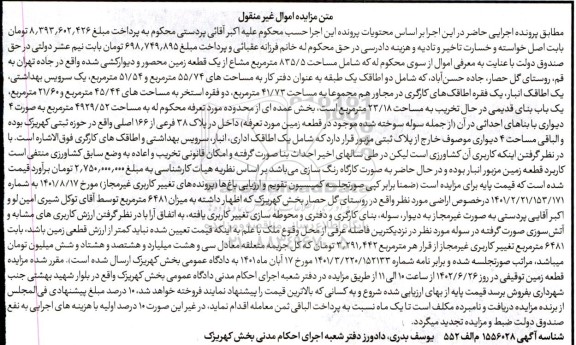 متن مزایده اموال غیر منقول
مطابق پرونده اجرایی حاضر در این اجرا بر اساس محتویات پرونده این اجرا حسب محکوم علیه اکبر آقائی پردستی محکوم به پرداخت مبلغ ۸٫۳۹۳٫۶۰۲٫۴۲۶ تومان
بابت اصل خواسته و خسارت تاخیر و تادیه و هزینه دادرسی در حق محکوم له خانم فرزانه عقبائی و پرداخت مبلغ ۶۹۸٫۷۴۹٫۸۹۵ تومان بابت نیم عشر دولتی در حق
صندوق دولت با عنایت به معرفی اموال از سوی محکوم له که شامل ۸۳۵/۵ مترمربع مشاع از یک قطعه زمین محصور و دیوارکشی شده واقع در جاده تهران به
قم، روستای گل حصار، جاده حسن‌آباد، که شامل دو اطاقک یک طبقه به عنوان دفتر کار به مساحت های ۵۵/۷۴ مترمربع و ۵۱/۵۴ مترمربع، یک سرویس بهداشتی،
یک اطاقک انبار، یک فقره اطاقک‌های کارگری در مجاور هم مجموعا به مساحت ۴۱/۷۳ مترمربع، دو فقره استخر به مساحت های ۴۵/۴۴ مترمربع و ۲۱/۶۰ مترمربع،
یک باب بنای قدیمی در حال تخریب به مساحت ۲۳/۱۸ مترمربع است، بخش عمده ای از محدوده مورد تعرفه محکوم له به مساحت ۴۹۲۹/۵۲ مترمربع به صورت ۴
دیواری با بناهای احداثی در آن (از جمله سوله سوخته شده موجود در قطعه زمین مورد تعرفه) داخل در پلاک ۳۸ فرعی از ۱۶۶ اصلی واقع در حوزه ثبتی کهریزک بوده
و الباقی مساحت ۴ دیواری موصوف خارج از پلاک ثبتی مزبور قرار دارد که شامل یک اطاقک اداری، انبار، سرویس بهداشتی و اطاقک های کارگری فوق‌الاشاره است. با
در نظر گرفتن اینکه کاربری آن کشاورزی است لیکن در طی سالهای اخیر احداث بنا صورت گرفته و امکان قانونی تخریب و اعاده به وضع سابق کشاورزی منتفی است
کاربرد قطعه زمین مزبور انبار بوده و در حال حاضر به صورت کارگاه رنگ سازی می‌باشد بر اساس نظریه هیأت کارشناسی به مبلغ ۲٫۷۵۰٫۰۰۰٫۰۰۰ تومان برآورد قیمت
شده است که قیمت پایه برای مزایده است (ضمنا برابر کپی صورتجلسه کمیسیون تقویم و ارزیابی باغها (پرونده‌های تغییر کاربری غیرمجاز) مورخ ۱۴۰۱/۸/۱۷ به شماره
۱۴۰۱/۲/۲۱/۱۵۳/۱۷۱ درخصوص اراضی مورد نظر واقع در روستای گل حصار بخش کهریزک که اظهار داشته به میزان ۶۴۸۱ مترمربع توسط آقای توکل شیری امین لو و
اکبر آقایی پردستی به صورت غیرمجاز به دیوار، سوله، بنای کارگری و دفتری و محوطه سازی تغییر کاربری یافته، به اتفاق آرا با در نظر گرفتن ارزش کاربری های مشابه و
آتش‌سوزی صورت گرفته در سوله مورد نظر در نزدیکترین فاصله عرفی از محل وقوع ملک با علم به اینکه قیمت تعیین شده نباید کمتر از ارزش قطعی زمین باشد، بابت
۶۴۸۱ مترمربع تغییر کاربری غیرمجاز از قرار هر مترمربع ۴٫۲۹۱٫۴۴۲ تومان که کل جزای نقدی متعلقه معادل سی و هشت میلیارد و هشتصد و هشتاد و شش میلیون تومان
میباشد، مراتب صورتجلسه شده و برابر نامه شماره ۱۴۰۱/۳/۲۲۰/۱۵۲۱۳۳ مورخ ۱۷ آبان ماه ۱۴۰۱ به دادگاه عمومی بخش کهریزک ارسال شده است، مقرر شده مزایده
قطعه زمین توقیفی در روز ۱۴۰۲/۶/۲۶ از ساعت ۱۰ الی ۱۱ از طریق مزایده در دفتر شعبه اجرای احکام مدنی دادگاه عمومی بخش کهریزک واقع در بلوار شهید بهشتی جنب
شهرداری بفروش برسد قیمت پایه از بهای ارزیابی شده شروع و به کسانی که بالاترین قیمت را پیشنهاد نمایند فروخته خواهد شد، ۱۰ درصد مبلغ پیشنهادی فی‌المجلس
از برنده مزایده دریافت و نامبرده مکلف است تا یک ماه نسبت به پرداخت الباقی ثمن معامله اقدام نماید، در غیر این صورت ۱۰ درصد اولیه با هزینه های اجرایی به نفع
صندوق دولت ضبط و مزایده تجدید میگردد.
شناسه آگهی ۱۵۵۶۰۲۸ م‌الف ۵۵۲ یوسف بدری، دادورز دفتر شعبه اجرای احکام مدنی بخش کهریزک